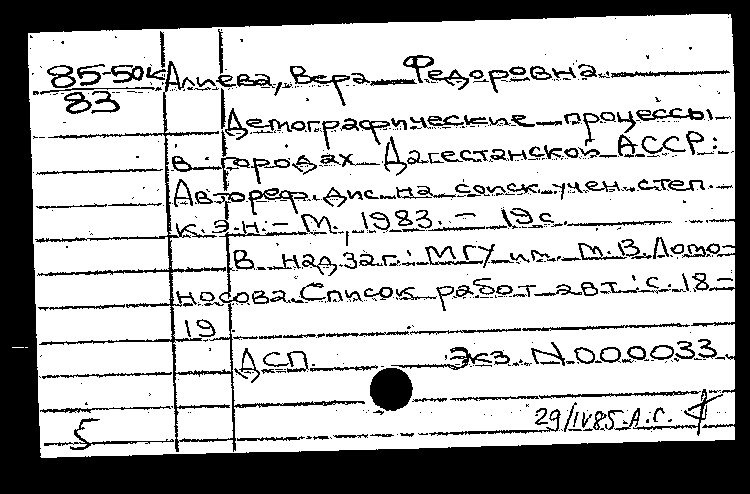 85-50к Алиева, Вера Федоровна
83
Демографические процессы
в городах Дагестанской АССР:
Автореф. дис. на соиск. учен. степ.
к.э.н. - М., 1983. - 19с.
В надзаг.: МГУ им. М.В. Ломо-
носова. Список работ авт.: с. 18-
19
ДСП. Экз. N000033
29/IV85. А.Г.
5